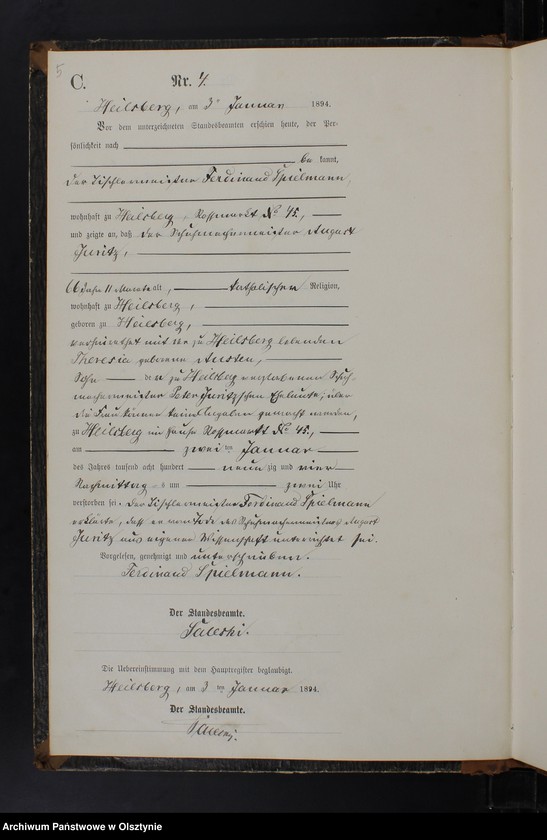 5
C.
Nr. 4.
Heilsberg, am 3ten Januar 1894.
Vor dem unterzeichneten Standesbeamten erschien heute, der Per-
sönlichkeit nach
be kannt,
der Tischlermeister Ferdinand Spielmann
wohnhaft zu Heilsberg, Rossmarkt No 45,
und zeigte an, daß der Schuhmachermeister August
Juritz,
66 Jahre 11 Monate alt, katholischer Religion,
wohnhaft zu Heilsberg,
geboren zu Heilsberg,
verheirathet mit der zu Heilsberg lebenden
Theresia geborene Austen,
Sohn der zu Heilsberg verstorbenen Schuh-
machermeister Peter Juritzschen Eheleute, über
die Frau können keine Angaben gemacht werden,
zu Heilsberg im Hause Rossmarkt No 45,
am zwei ten Januar
des Jahres tausend acht hundert neun zig und vier
Nachmittags um zwei Uhr
verstorben sei. Der Tischlermeister Ferdinand Spielmann
erklärte, daß er vom Tode des Schuhmachermeisters August
Juritz aus eigener Wissenschaft unterrichtet sei.
Vorgelesen, genehmigt und unterschrieben.
Ferdinand Spielmann.
Der Standesbeamte.
Die Uebereinstimmung mit dem Hauptregister beglaubigt.
Heilsberg, am 3 ten Januar 1894.
Der Standesbeamte.
Archiwum Państwowe w Olsztynie